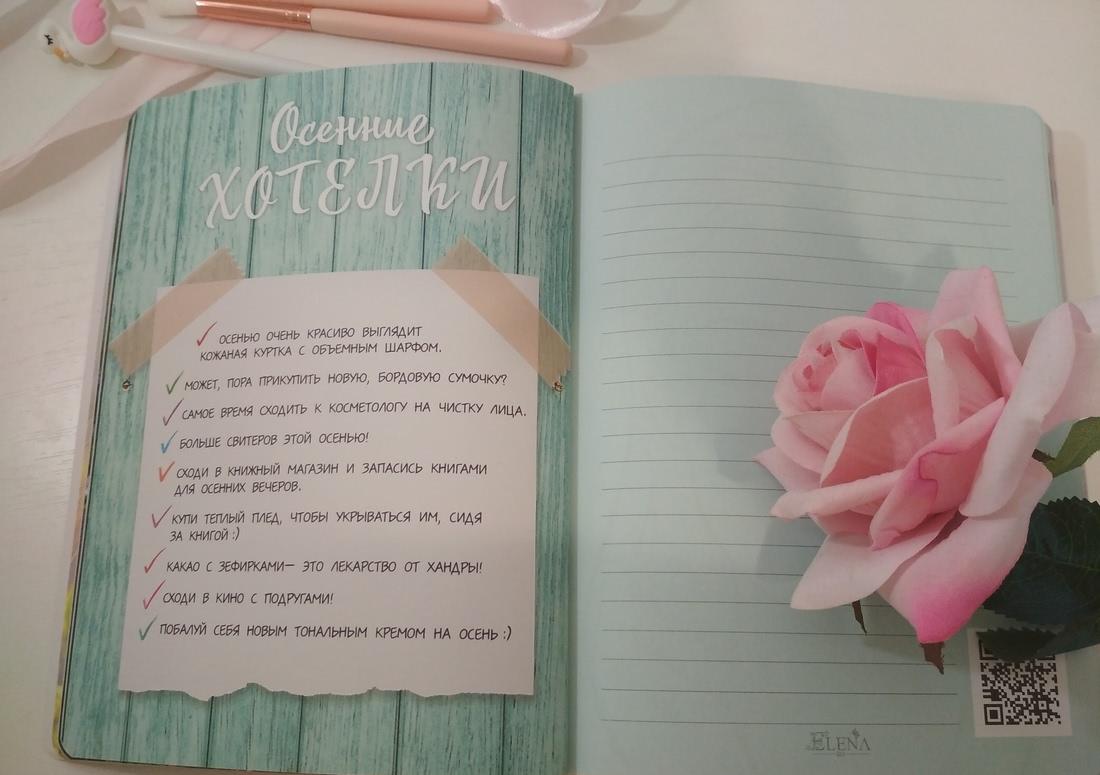 Осенние
ХОТЕЛКИ
ОСЕНЬЮ ОЧЕНЬ КРАСИВО ВЫГЛЯДИТ
КОЖАНАЯ КУРТКА С ОБЪЕМНЫМ ШАРФОМ.
МОЖЕТ, ПОРА ПРИКУПИТЬ НОВУЮ, БОРДОВУЮ СУМОЧКУ?
САМОЕ ВРЕМЯ СХОДИТЬ К КОСМЕТОЛОГУ НА ЧИСТКУ ЛИЦА.
БОЛЬШЕ СВИТЕРОВ ЭТОЙ ОСЕНЬЮ!
СХОДИ В КНИЖНЫЙ МАГАЗИН И ЗАПАСИСЬ КНИГАМИ
ДЛЯ ОСЕННИХ ВЕЧЕРОВ.
КУПИ ТЕПЛЫЙ ПЛЕД, ЧТОБЫ УКРЫВАТЬСЯ ИМ, СИДЯ
ЗА КНИГОЙ :)
КАКАО С ЗЕФИРКАМИ— ЭТО ЛЕКАРСТВО ОТ ХАНДРЫ!
СХОДИ В КИНО С ПОДРУГАМИ!
ПОБАЛУЙ СЕБЯ НОВЫМ ТОНАЛЬНЫМ КРЕМОМ НА ОСЕНЬ :)
ELENA